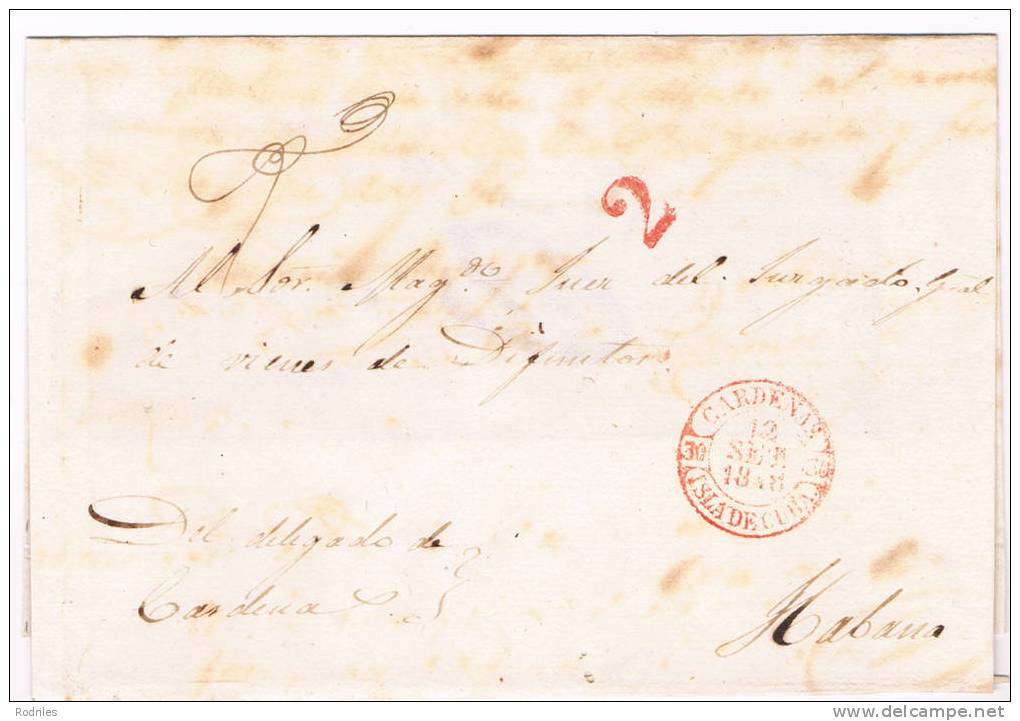 2
Al Sor. Mag.do Jues del Jurgado. Gral
de vienes de Difuntos.
CARDENAS
12
SET
ISLA DE CUBA
Del delegado de
Cardenas.
Habana
Rodriles
delcampe.net